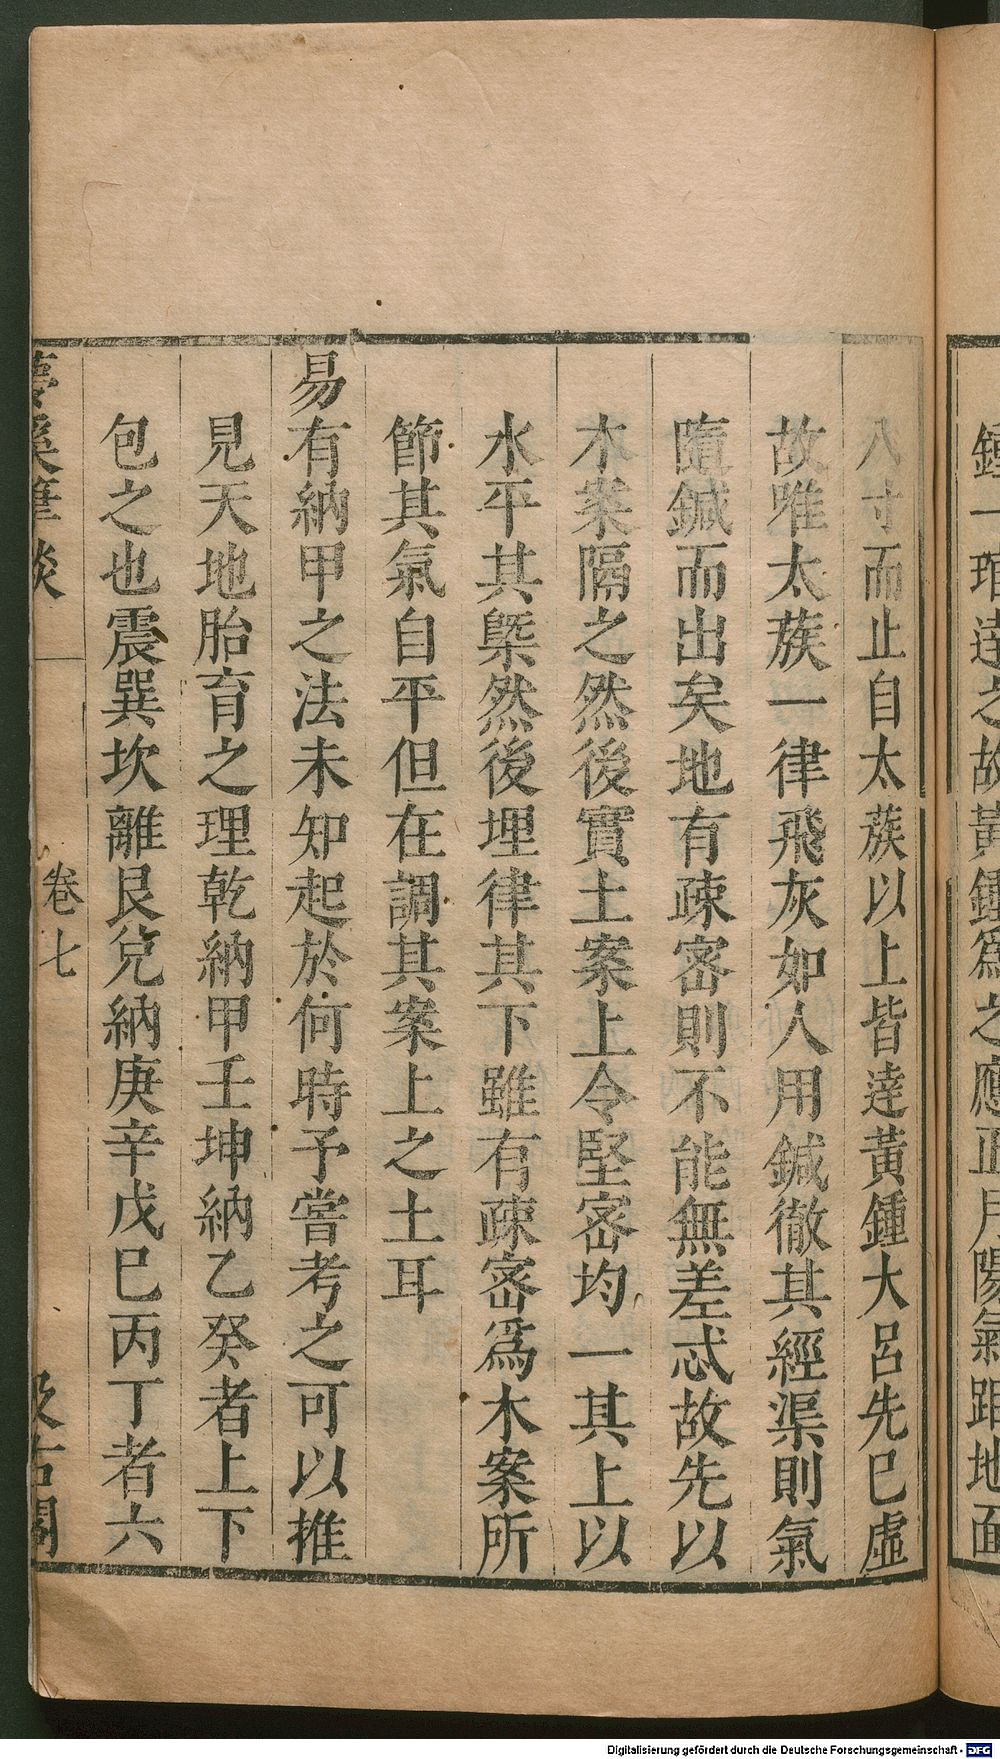 鍾一琯達之故黃鍾爲之應正月陽氣距地面
八寸而止自太蔟以上皆達黃鍾大呂先巳虛
故唯太蔟一律飛灰如人用鍼徹其經渠則氣
隨鍼而出矣地有疎宻則不能無差忒故先以
木案隔之然後實土案上令堅宻均一其上以
水平其槩然後埋律其下雖有疎宻爲木案所
節其氣自平但在調其案上之土耳
易有納甲之法未知起於何時予嘗考之可以推
見天地胎育之理乾納甲壬坤納乙癸者上下
包之也震巽坎離艮兌納庚辛戊巳丙丁者六
夢溪筆談 卷七 汲古閣
Digitalisierung gefördert durch die Deutsche Forschungsgemeinschaft - DFG